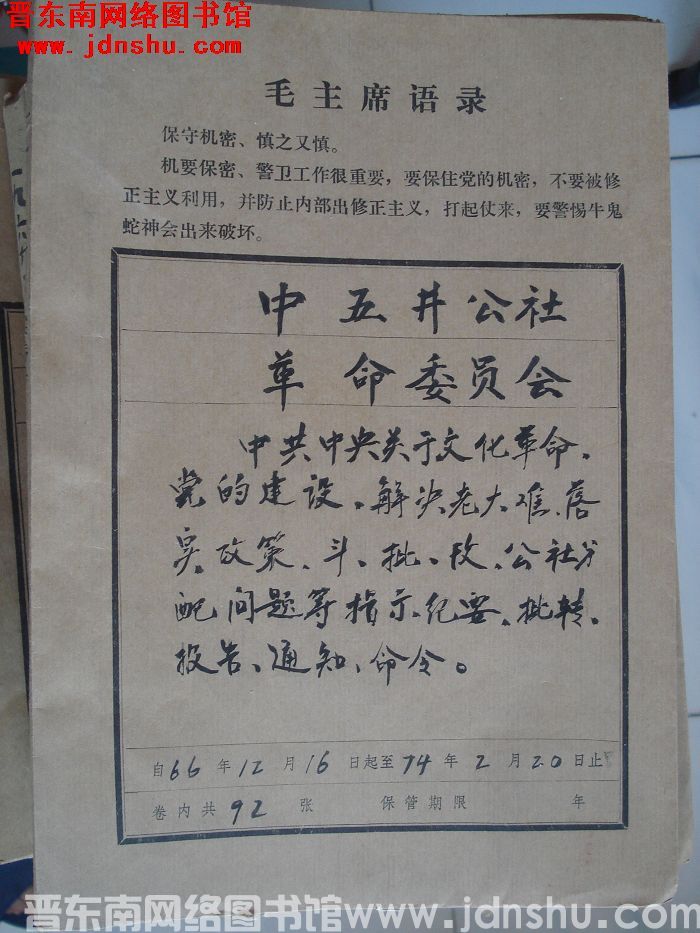 晋东南网络图书馆
www.jdnshu.com
毛主席语录
保守机密、慎之又慎。
机要保密、警卫工作很重要，要保住党的机密，不要被修
正主义利用，并防止内部出修正主义，打起仗来，要警惕牛鬼
蛇神会出来破坏。
中五井公社
革命委员会
中共中央关于文化革命、
党的建设、解决老大难、落
实政策、斗、批、改、公社分
配问题等指示、纪要、批转、
报告、通知、命令。
自66年12月16日起至74年2月20日止
卷内共92张 保管期限 年
晋东南网络图书馆www.jdnshu.com